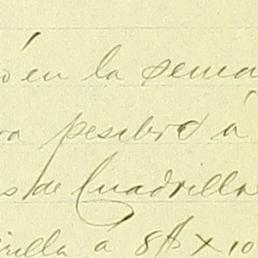 ó en la sema
ra pesebre á
s de Cuadrilla
rilla á 8 $ x 10